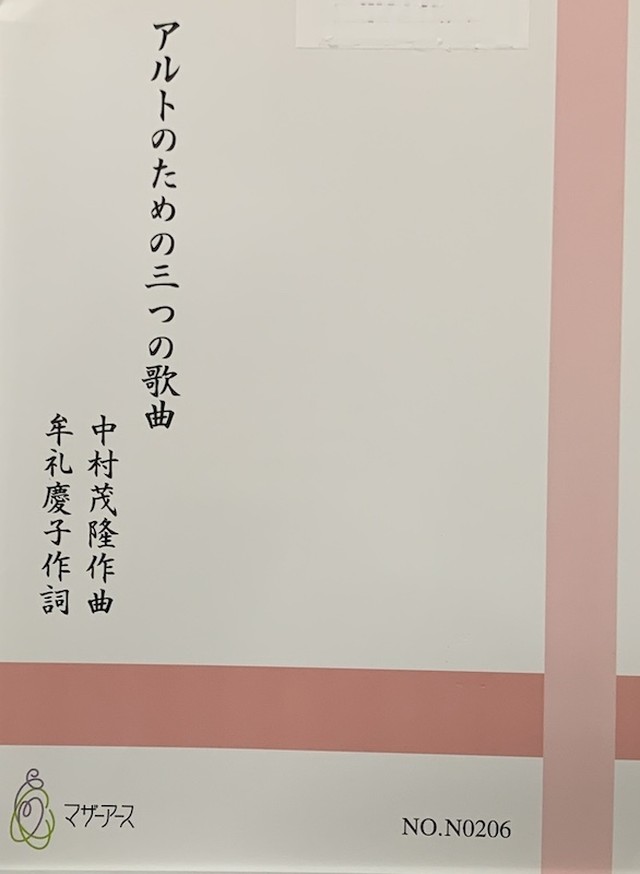 アルトのための三つの歌曲
中村茂隆作曲
牟礼慶子作詞
マザーアース
NO.N0206